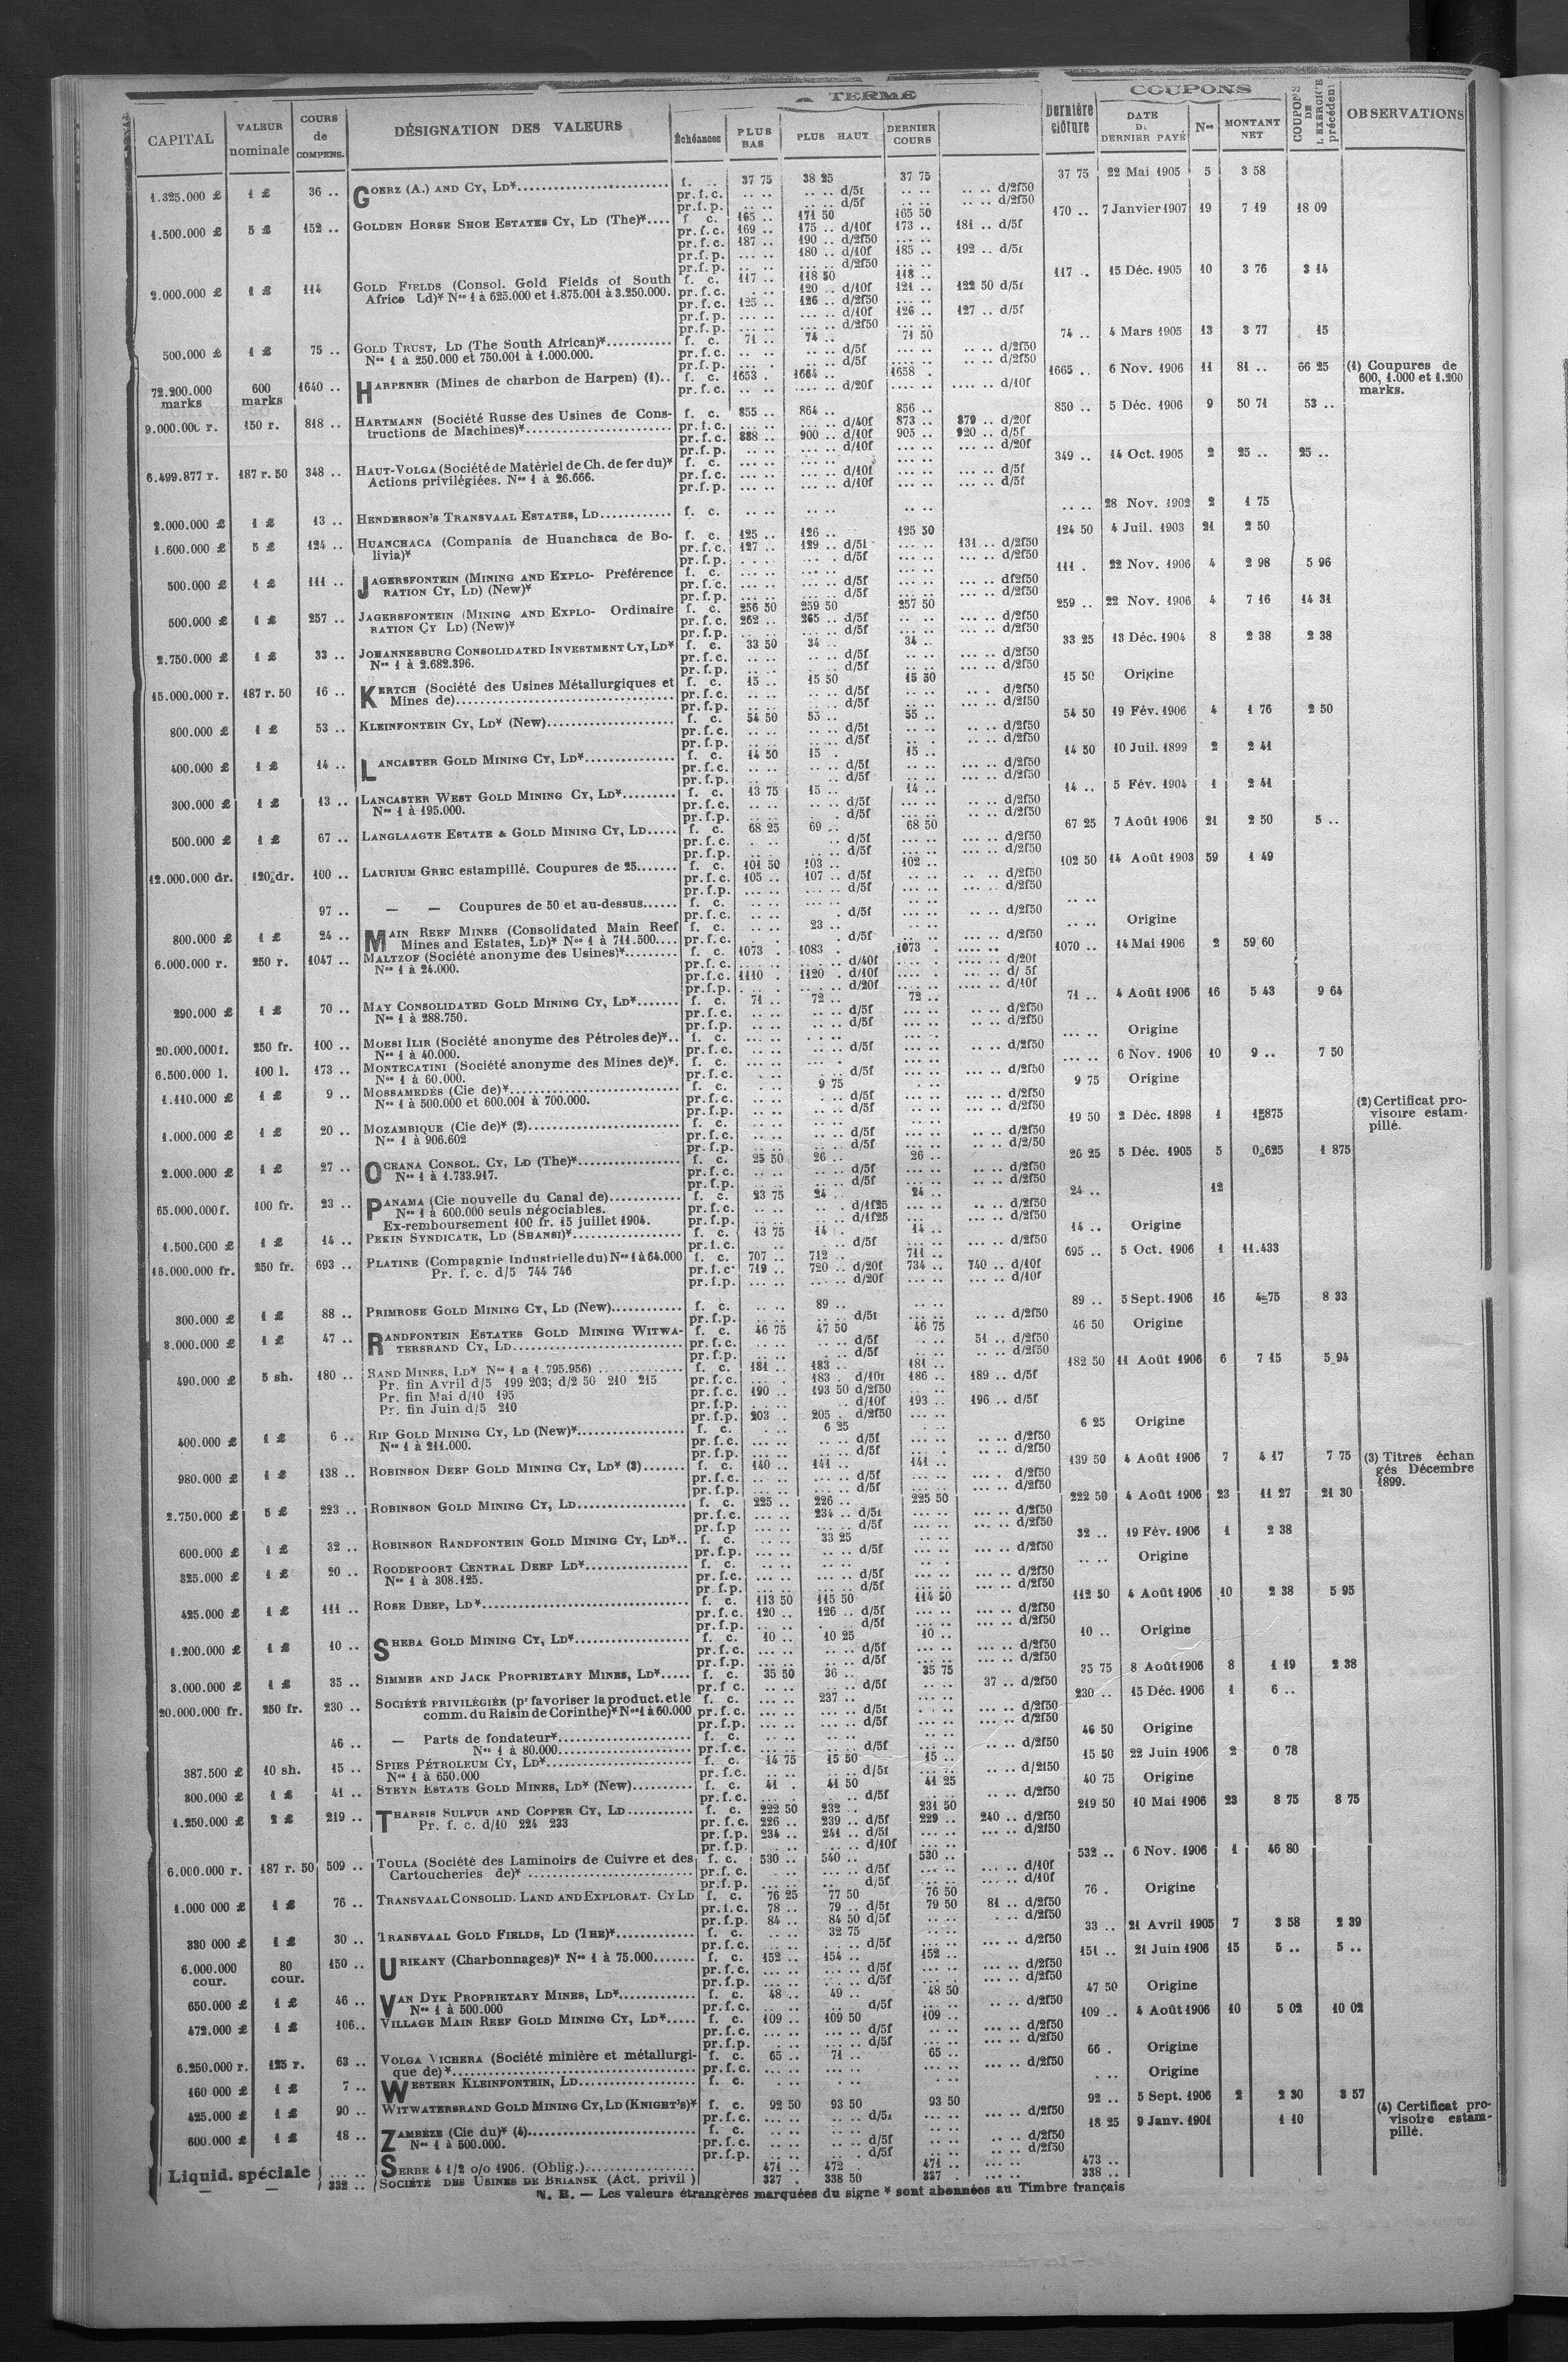 A TERME
COUPONS
CAPITAL | VALEUR nominale | COURS de COMPENS. | DÉSIGNATION DES VALEURS | Échéances | PLUS BAS | PLUS HAUT | DERNIER COURS | Dernière clôture | DATE DU DERNIER PAYÉ | Nos | MONTANT NET | COUPONS DE L'EXERCICE précédent | OBSERVATIONS
1.325.000 £ | 1 £ | 36 .. | GOERZ (A.) AND CY, LD* | f. .. | 37 75 | 38 25 | 37 75 | 37 75 | 22 Mai 1905 | 5 | 3 58
pr.f.c. .. .. | .. .. d/5f | .. .. | .. .. d/2f50
pr.f.p. .. .. | .. .. d/5f | .. .. | .. .. d/2f50
1.500.000 £ | 5 £ | 152 .. | GOLDEN HORSE SHOE ESTATES CY, LD (The)* | f. c. | 165 .. | 171 50 | 165 50 | 170 .. | 7 Janvier 1907 | 19 | 7 19 | 18 09
pr.f.c. 169 .. | 175 .. d/10f | 173 .. | 181 .. d/5f
pr.f.c. 187 .. | 190 .. d/2f50 | .. ..
pr.f.p. ... .. | 180 .. d/10f | 185 .. | 192 .. d/5f
pr.f.p. .. .. | ... .. d/2f50 | ... ..
2.000.000 £ | 1 £ | 114 | GOLD FIELDS (Consol. Gold Fields of South | f. c. | 117 .. | 118 50 | 118 .. | 117 .. | 15 Déc. 1905 | 10 | 3 76 | 3 14
Africa Ld)* Nos 1 à 625.000 et 1.875.001 à 3.250.000. | pr.f.c. | 120 .. d/10f | 121 .. | 122 50 d/5f
pr.f.c. 125 .. | 126 .. d/2f50 | ... ..
pr.f.p. ... .. | ... .. d/10f | 126 .. | 127 .. d/5f
pr.f.p. ... .. | ... .. d/2f50 | ... ..
500.000 £ | 1 £ | 75 .. | GOLD TRUST, LD (The South African)* | f. c. | 71 .. | 74 .. | 71 50 | 74 .. | 4 Mars 1905 | 13 | 3 77 | 15
Nos 1 à 250.000 et 750.001 à 1.000.000. | pr.f.c. .. .. | .. .. d/5f | ... .. | .. .. d/2f50
pr.f.p. ... .. | .. .. d/5f | ... .. | .. .. d/2f50
72.200.000 marks | 600 marks | 1640 .. | HARPENER (Mines de charbon de Harpen) (1) | f. c. | 1653 . | 1664 .. | 1658 . | 1665 .. | 6 Nov. 1906 | 11 | 81 .. | 66 25 | (1) Coupures de
600, 1.000 et 1.200
marks.
pr.f.c. .. .. | .... .. d/20f | .... .. | .... .. d/10f
9.000.000 r. | 150 r. | 818 .. | HARTMANN (Société Russe des Usines de Cons- | f. c. | 855 .. | 864 .. | 856 .. | 850 .. | 5 Déc. 1906 | 9 | 50 71 | 53 ..
tructions de Machines)* | pr.f.c. ... .. | ... .. d/40f | 873 .. | 879 .. d/20f
pr.f.c. 888 .. | 900 .. d/10f | 905 .. | 920 .. d/5f
pr.f.p. .. .. | ... .. d/10f | ... .. | ... .. d/20f
6.499.877 r. | 187 r. 50 | 348 .. | HAUT-VOLGA (Société de Matériel de Ch. de fer du)* | f. c. | ... .. | ... .. | ... .. | 349 .. | 14 Oct. 1905 | 2 | 25 .. | 25 ..
Actions privilégiées. Nos 1 à 26.666. | pr.f.c. ... .. | ... .. d/10f | ... .. | ... .. d/5f
pr.f.p. ... .. | ... .. d/10f | ... .. | ... .. d/5f
2.000.000 £ | 1 £ | 13 .. | HENDERSON'S TRANSVAAL ESTATES, LD | f. c. | .. .. | .. .. | .. .. | .. .. | 28 Nov. 1902 | 2 | 1 75
1.600.000 £ | 5 £ | 124 .. | HUANCHACA (Compania de Huanchaca de Bo- | f. c. | 125 .. | 126 .. | 125 50 | 124 50 | 4 Juil. 1903 | 21 | 2 50
livia)* | pr.f.c. 127 .. | 129 .. d/5f | ... .. | 131 .. d/2f50
pr.f.p. ... .. | ... . d/5f | ... .. | ... .. d/2f50
500.000 £ | 1 £ | 111 .. | JAGERSFONTEIN (MINING AND EXPLO- Préférence | f. c. | ... .. | ... .. | ... .. | 111 . | 22 Nov. 1906 | 4 | 2 98 | 5 96
RATION CY, LD) (New)* | pr.f.c. ... .. | ... .. d/5f | ... .. | ... .. d/2f50
pr.f.p. ... .. | ... .. d/5f | ... .. | ... .. d/2f50
500.000 £ | 1 £ | 257 .. | JAGERSFONTEIN (MINING AND EXPLO- Ordinaire | f. c. | 256 50 | 259 50 | 257 50 | 259 .. | 22 Nov. 1906 | 4 | 7 16 | 14 31
RATION CY LD) (New)* | pr.f.c. 262 .. | 265 .. d/5f | .. .. | ... .. d/2f50
pr.f.p. ... .. | ... .. d/5f | ... .. | ... .. d/2f50
2.750.000 £ | 1 £ | 33 .. | JOHANNESBURG CONSOLIDATED INVESTMENT CY, LD* | f. c. | 33 50 | 34 .. | 34 .. | 33 25 | 13 Déc. 1904 | 8 | 2 38 | 2 38
Nos 1 à 2.682.396. | pr.f.c. .. .. | .. .. d/5f | .. .. | .. .. d/2f50
pr.f.p. .. .. | .. .. d/5f | .. .. | .. .. d/2f50
15.000.000 r. | 187 r. 50 | 16 .. | KERTCH (Société des Usines Métallurgiques et | f. c. | 15 .. | 15 50 | 15 50 | 15 50 | Origine
Mines de) | pr.f.c. .. .. | .. .. d/5f | .. .. | .. .. d/2f50
pr.f.p. .. .. | .. .. d/5f | .. .. | .. .. d/2f50
800.000 £ | 1 £ | 53 .. | KLEINFONTEIN CY, LD* (New) | f. c. | 54 50 | 55 .. | 55 .. | 54 50 | 19 Fév. 1906 | 4 | 1 76 | 2 50
pr.f.c. .. .. | .. .. d/5f | .. .. | .. .. d/2f50
pr.f.p. .. .. | .. .. d/5f | .. .. | .. .. d/2f50
400.000 £ | 1 £ | 14 .. | LANCASTER GOLD MINING CY, LD* | f. c. | 14 50 | 15 . | 15 .. | 14 50 | 10 Juil. 1899 | 2 | 2 41
pr.f.c. .. .. | .. .. d/5f | .. .. | .. .. d/2f50
pr.f.p. .. .. | .. .. d/5f | .. .. | .. .. d/2f50
300.000 £ | 1 £ | 13 .. | LANCASTER WEST GOLD MINING CY, LD* | f. c. | 13 75 | 15 .. | 14 .. | 14 .. | 5 Fév. 1904 | 1 | 2 41
Nos 1 à 195.000. | pr.f.c. .. .. | .. .. d/5f | .. .. | .. .. d/2f50
pr.f.p. .. .. | .. . d/5f | .. .. | .. .. d/2f50
500.000 £ | 1 £ | 67 .. | LANGLAAGTE ESTATE & GOLD MINING CY, LD | f. c. | 68 25 | 69 .. | 68 50 | 67 25 | 7 Août 1906 | 21 | 2 50 | 5 ..
pr.f.c. .. .. | .. .. d/5f | ... .. | ... .. d/2f50
pr.f.p. .. .. | .. .. d/5f | ... .. | ... .. d/2f50
12.000.000 dr. | 120 dr. | 100 .. | LAURIUM GREC estampillé. Coupures de 25 | f. c. | 101 50 | 103 .. | 102 .. | 102 50 | 14 Août 1903 | 59 | 1 49
pr.f.c. 105 .. | 107 .. d/5f | ... .. | .. .. d/2f50
pr.f.p. ... .. | ... .. d/5f | ... .. | .. .. d/2f50
97 .. | — — Coupures de 50 et au-dessus | f. c. | ... .. | ... .. | ... .. | .. ..
pr.f.c. .. .. | . d/5f | ... .. | .. .. d/2f50
800.000 £ | 1 £ | 24 .. | MAIN REEF MINES (Consolidated Main Reef | f. c. | .. .. | 23 .. | .. .. | .. .. | Origine
Mines and Estates, LD)* Nos 1 à 711.500 | pr.f.c. . | . d/5f | .. .. | .. .. d/2f50
6.000.000 r. | 250 r. | 1047 .. | MALTZOF (Société anonyme des Usines)* | f. c. | 1073 . | 1083 . | 1073 . | 1070 .. | 14 Mai 1906 | 2 | 59 60
Nos 1 à 24.000. | pr.f.c. .. .. | .. .. d/40f | .... .. | .... .. d/20f
pr.f.c. 1110 . | 1120 . d/10f | .... . | .... .. d/ 5f
pr.f.p. ... .. | ... . d/20f | .... .. | .... .. d/10f
290.000 £ | 1 £ | 70 .. | MAY CONSOLIDATED GOLD MINING CY, LD* | f. c. | 71 .. | 72 .. | 72 .. | 71 .. | 4 Août 1906 | 16 | 5 43 | 9 64
Nos 1 à 288.750. | pr.f.c. .. .. | .. .. d/5f | ... .. | .. .. d/2f50
pr.f.p. .. .. | .. .. d/5f | ... .. | .. .. d/2f50
20.000.000 f. | 250 fr. | 100 .. | MOESI ILIR (Société anonyme des Pétroles de)* | f. c. | ... .. | . .. | ... .. | ... .. | Origine
Nos 1 à 40.000. | pr.f.c. ... .. | .. . d/5f | ... .. | .. .. d/2f50
6.500.000 l. | 100 l. | 173 .. | MONTECATINI (Société anonyme des Mines de)* | f. c. | ... .. | ... .. | ... .. | ... .. | 6 Nov. 1906 | 10 | 9 .. | 7 50
Nos 1 à 60.000. | pr.f.c. . .. | .. .. d/5f | ... .. | ... .. d/2f50
1.110.000 £ | 1 £ | 9 .. | MOSSAMEDÈS (Cie de)* | f. c. | . .. | 9 75 | . .. | 9 75 | Origine
Nos 1 à 500.000 et 600.001 à 700.000. | pr.f.c. .. .. | .. .. d/5f | .. .. | .. .. d/2f50
pr.f.p. .. .. | .. .. d/5f | .. .. | .. .. d/2f50
1.000.000 £ | 1 £ | 20 .. | MOZAMBIQUE (Cie de)* (2) | f. c. | .. .. | .. .. | .. .. | 19 50 | 2 Déc. 1898 | 1 | 1 875 | (2) Certificat pro-
visoire estam-
pillé.
Nos 1 à 906.602 | pr.f.c. .. .. | .. .. d/5f | .. .. | .. .. d/2f50
pr.f.p. .. .. | .. .. d/5f | .. .. | .. .. d/2/50
2.000.000 £ | 1 £ | 27 .. | OCEANA CONSOL. CY, LD (The)* | f. c. | 25 50 | 26 .. | 26 .. | 26 25 | 5 Déc. 1905 | 5 | 0 625 | 1 875
Nos 1 à 1.733.917. | pr.f.c. .. .. | .. .. d/5f | .. .. | .. .. d/2f50
pr.f.p. .. .. | .. .. d/5f | .. .. | .. .. d/2f50
65.000.000 f. | 100 fr. | 23 .. | PANAMA (Cie nouvelle du Canal de) | f. c. | 23 75 | 24 .. | 24 .. | 24 .. | 12
Nos 1 à 600.000 seuls négociables. | pr.f.c. .. .. | .. . d/1f25 | ... .. | .. .. d/2f50
Ex-remboursement 100 fr. 15 juillet 1904. | pr.f.p. .. .. | .. .. d/1f25 | ... .. | .. .. d/2f50
1.500.000 £ | 1 £ | 14 .. | PEKIN SYNDICATE, LD (SHANSI)* | f. c. | 13 75 | 14 . | 14 .. | 14 .. | Origine
pr.f.c. .. .. | .. .. d/5f | .. .. | .. .. d/2f50
16.000.000 fr. | 250 fr. | 693 .. | PLATINE (Compagnie Industrielle du) Nos 1 à 64.000 | f. c. | 707 .. | 712 .. | 711 .. | 695 .. | 5 Oct. 1906 | 1 | 11.433
Pr. f. c. d/5 744 746 | pr.f.c. 719 .. | 720 .. d/20f | 734 .. | 740 .. d/10f
pr.f.p. ... .. | ... .. d/20f | ... .. | ... .. d/10f
300.000 £ | 1 £ | 88 .. | PRIMROSE GOLD MINING CY, LD (New) | f. c. | .. .. | 89 .. | .. .. | 89 .. | 5 Sept. 1906 | 16 | 4 75 | 8 33
pr.f.p. .. .. | .. .. d/5f | .. .. | .. .. d/2f50
3.000.000 £ | 1 £ | 47 .. | RANDFONTEIN ESTATES GOLD MINING WITWA- | f. c. | 46 75 | 47 50 | 46 75 | 46 50 | Origine
TERSRAND CY, LD | pr.f.c. .. .. | .. .. d/5f | 51 .. d/2f50
pr.f.p. .. .. | .. .. d/5f | .. .. | .. .. d/2f50
490.000 £ | 5 sh. | 180 .. | RAND MINES, LD* Nos 1 à 1.795.956) | f. c. | 181 .. | 183 .. | 181 .. | 182 50 | 11 Août 1906 | 6 | 7 15 | 5 94
Pr. fin Avril d/5 199 203; d/2 50 210 215 | pr.f.c. ... . | 183 . d/10f | 186 .. | 189 .. d/5f
Pr. fin Mai d/10 195 | pr.f.c. 190 .. | 193 50 d/2f50 | .. ..
Pr. fin Juin d/5 210 | pr.f.p. .. .. | .. .. d/10f | 193 .. | 196 .. d/5f
pr.f.p. 203 .. | 205 . d/2f50 | ... ..
400.000 £ | 1 £ | 6 .. | RIP GOLD MINING CY, LD (New)* | f. c. | . .. | 6 25 | . .. | 6 25 | Origine
Nos 1 à 211.000. | pr.f.c. ... .. | .. .. d/5f | ... .. | .. .. d/2f50
pr.f.p. ... .. | .. .. d/5f | .. .. | .. .. d/2f50
980.000 £ | 1 £ | 138 .. | ROBINSON DEEP GOLD MINING CY, LD* (3) | f. c. | 140 .. | 141 .. | 141 .. | 139 50 | 4 Août 1906 | 7 | 4 17 | 7 75 | (3) Titres échan
gés Décembre
1899.
pr.f.c. ... .. | ... .. d/5f | ... .. | ... . d/2f50
pr.f.p. ... .. | ... .. d/5f | ... .. | ... .. d/2f50
2.750.000 £ | 5 £ | 223 .. | ROBINSON GOLD MINING CY, LD | f. c. | 225 .. | 226 .. | 225 50 | 222 50 | 4 Août 1906 | 23 | 11 27 | 21 30
pr.f.c. ... .. | 234 .. d/5f | ... .. | ... .. d/2f50
pr.f.p ... .. | ... .. d/5f | ... .. | ... .. d/2f50
600.000 £ | 1 £ | 32 .. | ROBINSON RANDFONTEIN GOLD MINING CY, LD* | f. c. | .. .. | 33 25 | .. .. | 32 .. | 19 Fév. 1906 | 1 | 2 38
pr.f.p. .. .. | .. .. d/5f | .. .. | .. .. d/2f50
325.000 £ | 1 £ | 20 .. | ROODEPOORT CENTRAL DEEP LD* | f. c. | .. .. | .. .. | .. .. | .. .. | Origine
Nos 1 à 308.125. | pr.f.c. .. .. | ... .. d/5f | ... .. | ... .. d/2f50
pr.f.p. ... .. | ... .. d/5f | ... .. | ... .. d/2f50
425.000 £ | 1 £ | 111 .. | ROSE DEEP, LD* | f. c. | 113 50 | 115 50 | 114 50 | 112 50 | 4 Août 1906 | 10 | 2 38 | 5 95
pr.f.c. 120 .. | 126 .. d/5f | ... .. | ... .. d/2f50
pr.f.p. ... .. | .. d/5f | ... .. | ... .. d/2f50
1.200.000 £ | 1 £ | 10 .. | SHEBA GOLD MINING CY, LD* | f. c. | 10 .. | 10 25 | 10 .. | 10 .. | Origine
pr.f.c. .. .. | .. .. d/5f | ... .. | ... .. d/2f50
pr.f.p. ... .. | .. .. d/5f | ... .. | ... .. d/2f50
3.000.000 £ | 1 £ | 35 .. | SIMMER AND JACK PROPRIETARY MINES, LD* | f. c. | 35 50 | 36 .. | 35 75 | 35 75 | 8 Août 1906 | 8 | 1 19 | 2 38
pr.f c. .. .. | .. .. d/5f | 37 .. d/2f50
20.000.000 fr. | 250 fr. | 230 .. | SOCIÉTÉ PRIVILÉGIÉE (pr favoriser la product. et le | f. c. | ... .. | 237 .. | ... .. | 230 .. | 15 Déc. 1906 | 1 | 6 ..
comm. du Raisin de Corinthe)* Nos 1 à 60.000 | pr.f.c. ... .. | ... .. d/5f | ... .. | ... .. d/2f50
pr.f.p. ... .. | ... .. d/5f | ... .. | ... .. d/2f50
46 .. | — Parts de fondateur* | f. c. | .. .. | .. .. | .. .. | 46 50 | Origine
Nos 1 à 80.000 | pr.f.c. ... .. | ... .. d/5f | ... .. | .. .. d/2f50
387.500 £ | 10 sh. | 15 .. | SPIES PÉTROLEUM CY, LD* | f. c. | 14 75 | 15 50 | 15 .. | 15 50 | 22 Juin 1906 | 2 | 0 78
Nos 1 à 650.000 | pr.f.c. .. .. | .. .. d/5f | .. .. | .. .. d/2150
300.000 £ | 1 £ | 41 .. | STEYN ESTATE GOLD MINES, LD* (New) | f. c. | 41 . | 41 50 | 41 25 | 40 75 | Origine
pr.f.c. .. .. | .. .. d/5f | .. .. | .. .. d/2f50
1.250.000 £ | 2 £ | 219 .. | THARSIS SULFUR AND COPPER CY, LD | f. c. | 222 50 | 232 .. | 231 50 | 219 50 | 10 Mai 1906 | 23 | 8 75 | 8 75
Pr. f. c. d/10 224 233 | pr.f.c. 226 .. | 239 .. d/5f | 229 .. | 240 .. d/2f50
pr.f.p. 234 .. | 241 .. d/5f | ... .. | ... .. d/2f50
pr.f.p. ... .. | .. .. d/10f | ... ..
6.000.000 r. | 187 r. 50 | 509 .. | TOULA (Société des Laminoirs de Cuivre et des | f. c. | 530 .. | 540 .. | 530 .. | 532 .. | 6 Nov. 1906 | 1 | 46 80
Cartoucheries de)* | pr.f.c. ... .. | ... .. d/5f | ... .. | ... .. d/10f
pr.f.p. ... .. | ... .. d/5f | ... .. | ... .. d/10f
1.000 000 £ | 1 £ | 76 .. | TRANSVAAL CONSOLID. LAND AND EXPLORAT. CY LD | f. c. | 76 25 | 77 50 | 76 50 | 76 . | Origine
pr.f.c. 78 .. | 79 .. d/5f | 79 50 | 81 .. d/2f50
pr.f.p. 84 .. | 84 50 d/5f | .. .. | . .. d/2f50
330 000 £ | 1 £ | 30 .. | TRANSVAAL GOLD FIELDS, LD (THE)* | f. c. | .. .. | 32 75 | .. .. | 33 .. | 21 Avril 1905 | 7 | 3 58 | 2 39
pr.f.c. .. .. | .. .. d/5f | .. .. | .. .. d/2f50
6.000.000 cour. | 80 cour. | 150 .. | URIKANY (Charbonnages)* Nos 1 à 75.000 | f. c. | 152 .. | 154 .. | 152 .. | 151 .. | 21 Juin 1906 | 15 | 5 .. | 5 ..
pr.f.c. ... .. | ... .. d/5f | ... .. | ... .. d/2f50
pr.f.p. ... .. | ... .. d/5f | ... .. | ... .. d/2f50
650.000 £ | 1 £ | 46 .. | VAN DYK PROPRIETARY MINES, LD* | f. c. | 48 .. | 49 .. | 48 50 | 47 50 | Origine
Nos 1 à 500.000 | pr.f.c. .. .. | .. .. d/5f | .. .. | .. .. d/2f50
472.000 £ | 1 £ | 106.. | VILLAGE MAIN REEF GOLD MINING CY, LD* | f. c. | 109 .. | 109 50 | 109 .. | 109 .. | 4 Août 1906 | 10 | 5 02 | 10 02
pr.f.c. ... .. | ... .. d/5f | ... .. | ... .. d/2f50
pr.f.p. ... .. | ... .. d/5f | ... .. | ... .. d/2f50
6.250.000 r. | 125 r. | 63 .. | VOLGA VICHERA (Société minière et métallurgi- | f. c. | 65 .. | 71 .. | 65 .. | 66 . | Origine
que de)* | pr.f.c. ... .. | ... .. | ... .. | ... .. d/2f50
160 000 £ | 1 £ | 7 .. | WESTERN KLEINFONTEIN, LD | f. c. | .. .. | .. .. | .. .. | . .. | Origine
425.000 £ | 1 £ | 90 .. | WITWATERSRAND GOLD MINING CY, LD (KNIGHT'S)* | f. c. | 92 50 | 93 50 | 93 50 | 92 .. | 5 Sept. 1906 | 2 | 2 30 | 3 57
pr.f.c. ... .. | .. .. d/5f | ... .. | ... .. d/2f50
600.000 £ | 1 £ | 18 .. | ZAMBÈZE (Cie du)* (4) | f. c. | .. .. | .. .. | .. .. | 18 25 | 9 Janv. 1901 | 1 10 | (4) Certificat pro-
visoire estam-
pillé.
Nos 1 à 500.000. | pr.f.c. ... .. | ... .. d/5f | ... .. | ... .. d/2f50
pr.f.p. ... .. | ... .. d/5f | ... .. | ... .. d/2f50
Liquid. spéciale | ... .. | SERBE 4 1/2 o/o 1906. (Oblig.) | 471 .. | 472 . | 471 .. | ... .. | 473 ..
332 .. | SOCIÉTÉ DES USINES DE BRIANSK (Act. privil ) | 337 . | 338 50 | 337 . | ... .. | 338 ..
N. B. — Les valeurs étrangères marquées du signe * sont abonnées au Timbre français